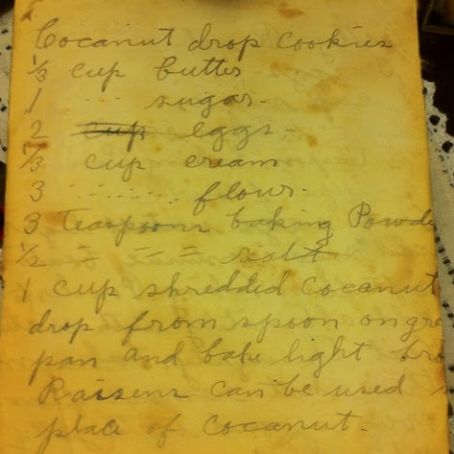 Cocanut drop cookies
1/3 cup butter
1 " " sugar.
2 ~~cup~~ eggs.
cup cream
3 " " flour.
3 teaspoons baking Powde
1/2 " " " salt
1 cup shredded cocanut
drop from spoon on gre
pan and bake light bro
Raisens can be used
place of cocanut.